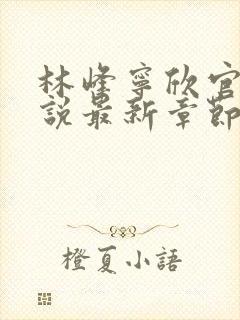 林峰寧欣官
說最新章節
橙夏小語